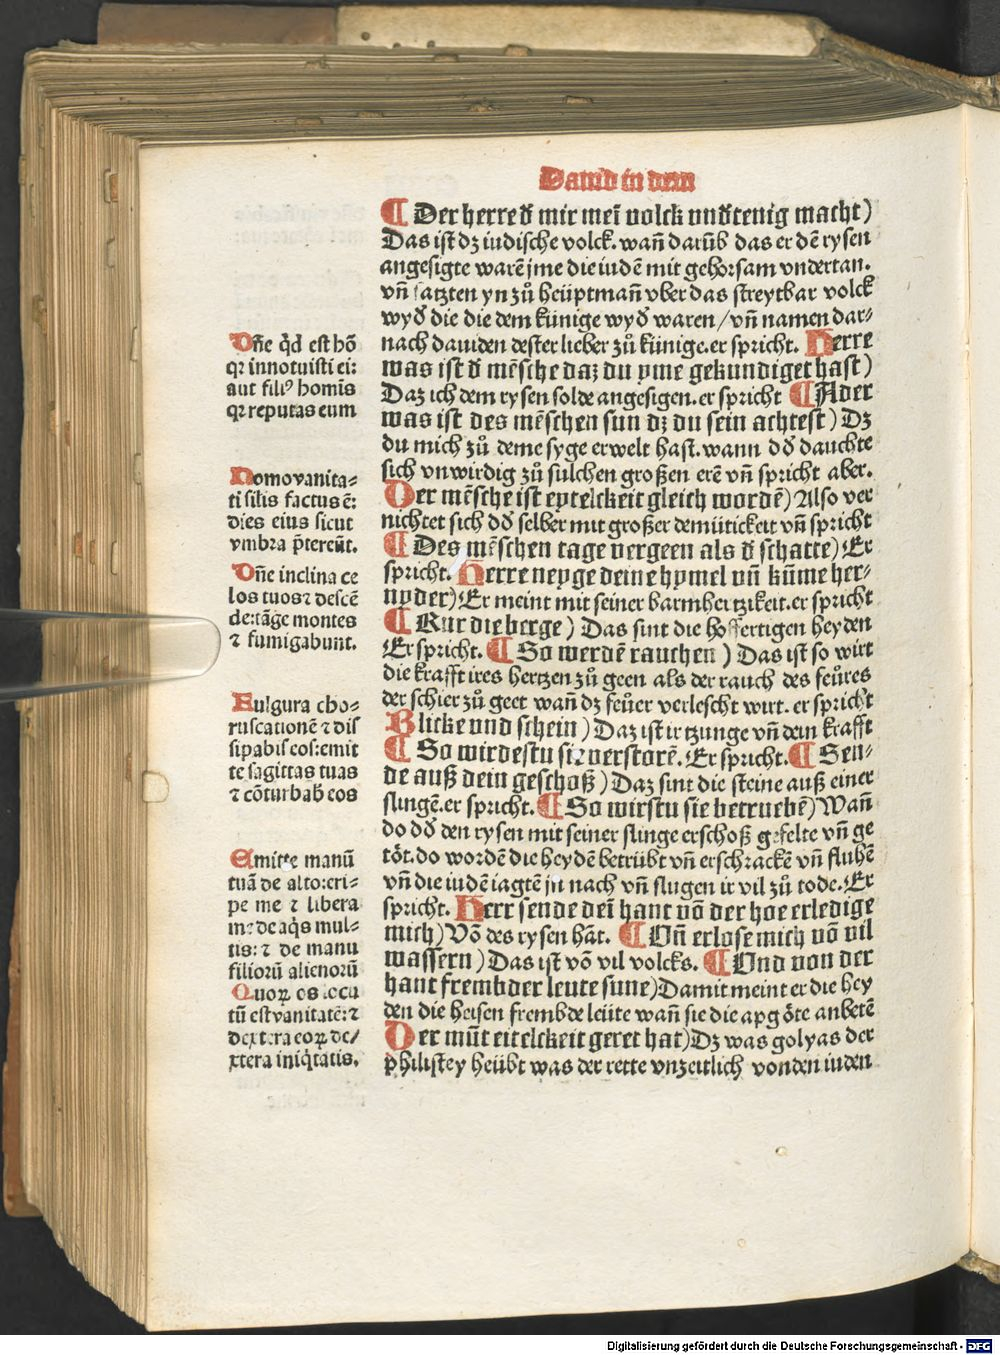 Dauid in dem
¶ Der herre đ mir mei volck vnđtenig macht)
Das ist dz iudische volck. wañ darũb das er dẽ rysen
angesigte warẽ jme die iudẽ mit gehorsam vndertan.
vñ satzten yn zů heüptmañ vber das streytbar volck
wyđ die die dem künige wyđ waren / vñ namen dar⸗
nach dauiden dester lieber zů künige. er spricht. Herre
was ist đ mẽsche daz du yme gekundiget hast)
Daz ich dem rysen solde angesigen. er spricht ¶ Ader
was ist des mẽschen sun dz du sein achtest) Dz
du mich zů deme syge erwelt hast. wann dđ dauchte
sich vnwirdig zů sulchen großen erẽ vñ spricht aber.
Der mẽsche ist eytelckeit gleich wordẽ) Also ver
nichtet sich dđ selber mit großer demütickeit vñ spricht
¶ Des mẽschen tage vergeen als đ schatte) Er
spricht. Herre neyge deine hymel vñ kũme her⸗
nyder) Er meint mit seiner barmhertzikeit. er spricht
¶ Rur die berge) Das sint die hoffertigen heyden
Er spricht. ¶ So werdẽ rauchen) Das ist so wirt
die krafft ires hertzen zů geen als der rauch des feüres
der schier zů geet wañ dz feüer verlescht wirt. er spricht
Blicke vnd schein) Daz ist ir tzunge vñ dein krafft
¶ So wirdestu sie verstorẽ. Er spricht. ¶ Sen⸗
de auß dein geschoß) Daz sint die steine auß einer
slingẽ. er spricht. ¶ So wirstu sie betruebẽ) Wañ
do dđ den rysen mit seiner slinge erschoß gefelte vñ ge
tôt. do wordẽ die heydẽ betrübt vñ erschrackẽ vñ fluhẽ
vñ die iudẽ iagtẽ jn nach vñ slugen ir vil zů tode. Er
spricht. Herr sende dei hant võ der hoe erledige
mich) Võ des rysen hãt. ¶ Vñ erlose mich võ vil
wassern) Das ist võ vil volcks. ¶ Vnd von der
hant frembder leute sune) Damit meint er die hey
den die heisen frembde leüte wañ sie die apgöte anbetẽ
Der mũt eitelckeit geret hat) Dz was golyas der
philistey heübt was der rette vnzeitlich von den iuden
Dñe q̇d est hõ
qꝛ innotuisti ei:
aut filiꝰ homĩs
qꝛ reputas eum
Homo vanita⸗
ti silis factus ẽ:
dies eius sicut
vmbra p̃tereũt.
Dñe inclina ce
los tuos ⁊ descẽ
de: tãge montes
⁊ fumigabunt.
Fulgura cho⸗
ruscationẽ ⁊ dis
sipabis eos: emit
te sagittas tuas
⁊ cõturbab̃ eos
Emitte manũ
tuã de alto: eri⸗
pe me ⁊ libera
me de aq̇s mul⸗
tis: ⁊ de manu
filiorũ alienorũ
Quoꝝ os locu
tũ est vanitatẽ: ⁊
dextera eoꝝ de/
xtera iniq̇tatis.
Digitalisierung gefördert durch die Deutsche Forschungsgemeinschaft - DFG